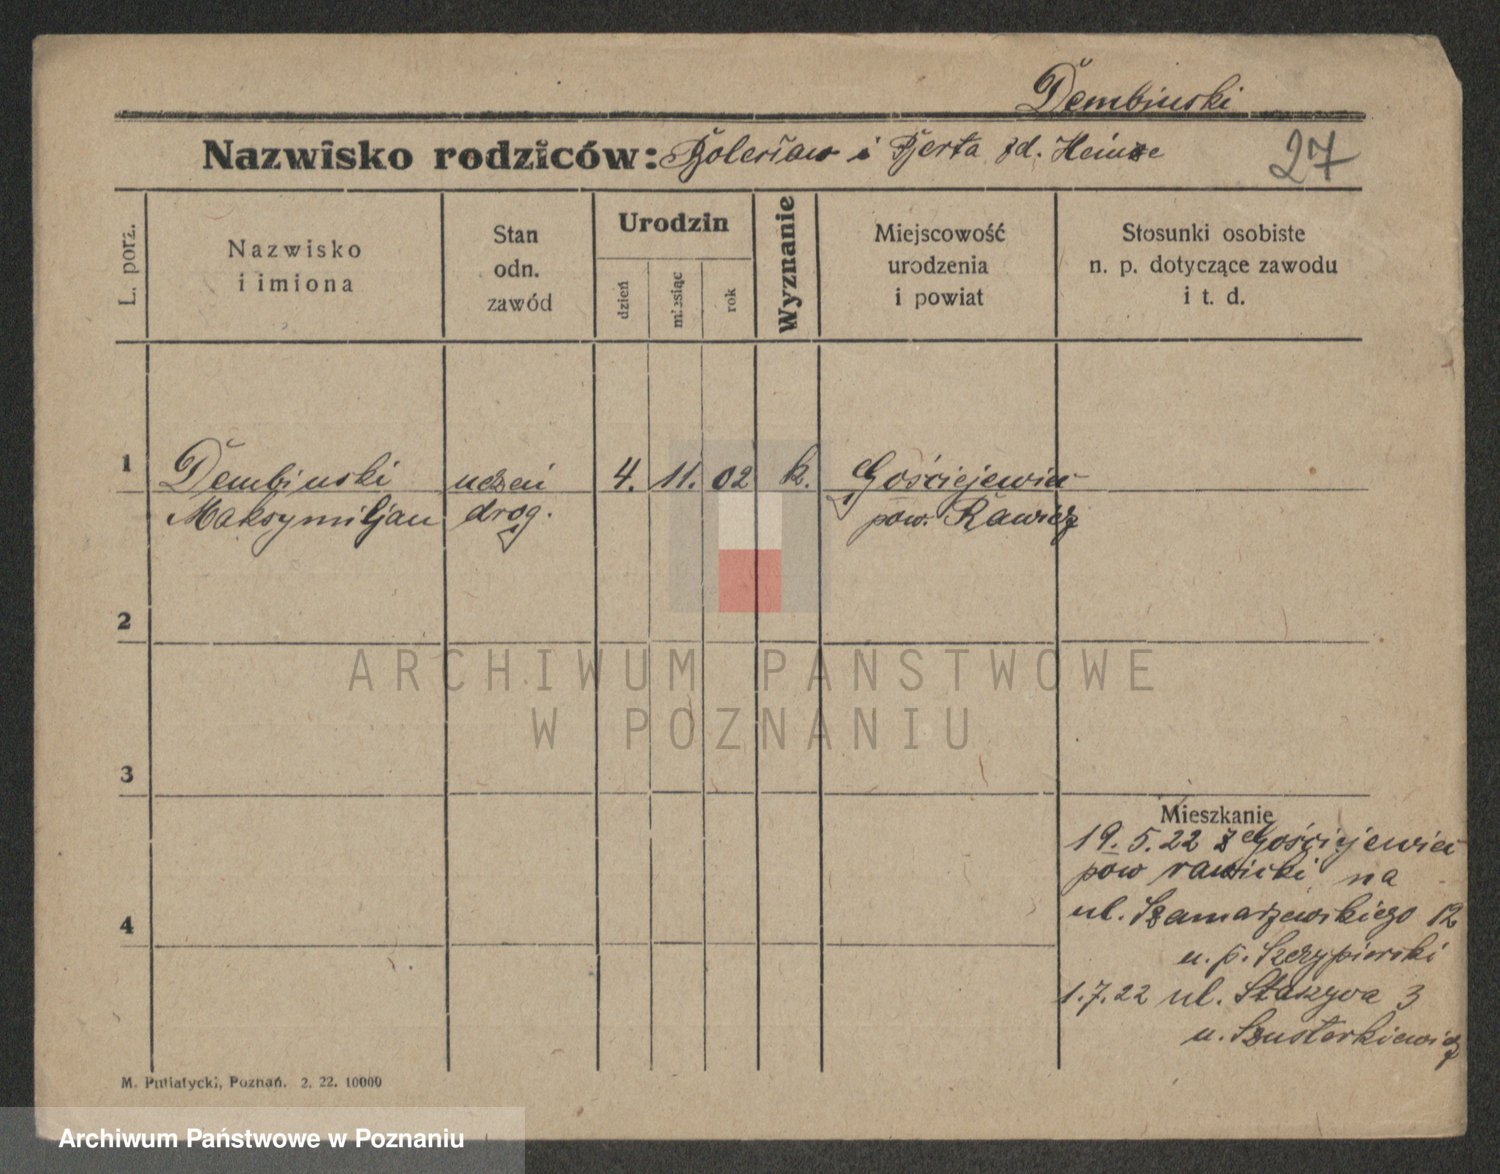 Dembinski
Nazwisko rodziców: Bolesław i Berta zd. Heinze
27
L. porz.
Nazwisko
i imiona
Stan
odn.
zawód
Urodzin
dzień
miesiąc
rok
Wyznanie
Miejscowość
urodzenia
i powiat
Stosunki osobiste
n. p. dotyczące zawodu
i t. d.
1 Dembinski uczeń 4. 11. 02 k. Gościejewice
Maksymiljan drog. pow. Rawicz
2
3
4
Mieszkanie
19.5.22 z Gościejewic
pow rawicki na
ul. Szamarzewskiego 12
u. p. Szczypierski
1.7.22 ul. Staszyca 3
u. Szusterkiewicz
M. Putiatycki, Poznań. 2. 22. 10000
ARCHIWUM PAŃSTWOWE
W POZNANIU
Archiwum Państwowe w Poznaniu